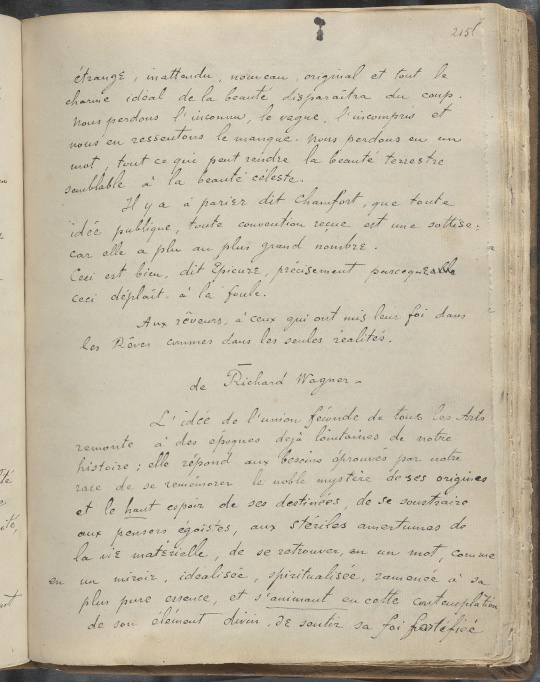 215
étrange, inattendu, nouveau, original et tout le
charme idéal de la beauté disparaîtra du coup.
Nous perdons l'inconnu, le vague, l'incompris et
nous en ressentons le manque. Nous perdons en un
mot, tout ce que peut rendre la beauté terrestre
semblable à la beauté céleste.
Il y a à parier dit Chamfort, que toute
idée publique, toute convention reçue est une sottise;
car elle a plu au plus grand nombre.
Ceci est bien, dit Epicure, précisement parceque
ceci déplait à la foule.
Aux rêveurs, à ceux qui ont mis leur foi dans
les Rêves commes dans les seules réalités.
de Richard Wagner -
L'idée de l'union féconde de tous les Arts
remonte à des epoques dejà lointaines de notre
histoire; elle répond aux besoins éprouvés par notre
race de se remémorer le noble mystère de ses origines
et le haut espoir de ses destinées, de se soustraire
aux pensers égoïstes, aux stériles amertumes de
la vie matérielle, de se retrouver, en un mot, comme
en un miroir, idealisée, spiritualisée, ramenée à sa
plus pure essence, et s'animant en cette contemplation
de son élément divin, de sentir sa foi fortifiée